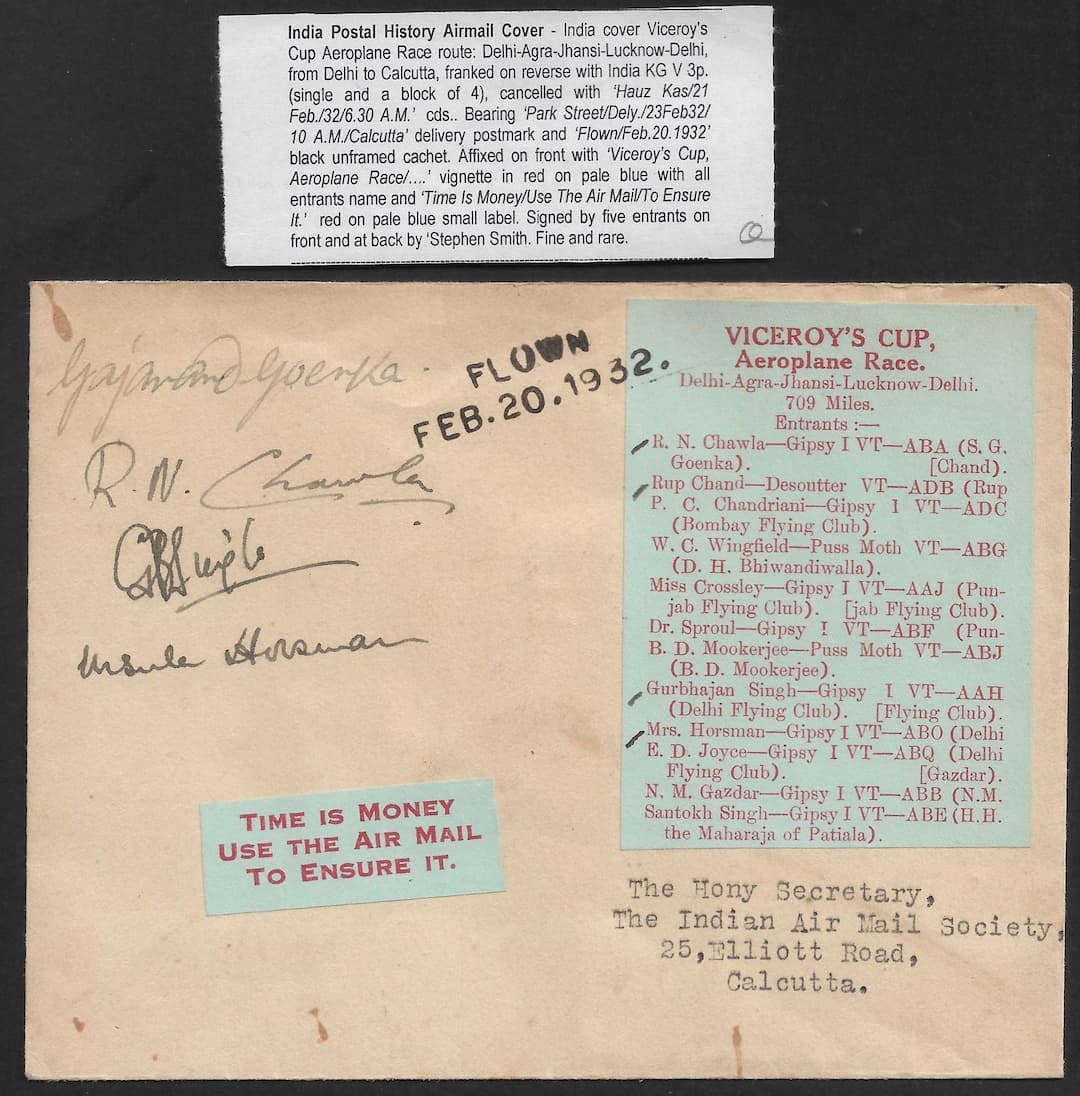 India Postal History Airmail Cover - India cover Viceroy's
Cup Aeroplane Race route: Delhi-Agra-Jhansi-Lucknow-Delhi,
from Delhi to Calcutta, franked on reverse with India KG V 3p.
(single and a block of 4), cancelled with 'Hauz Kas/21
Feb./32/6.30 A.M.' cds.. Bearing 'Park Street/Dely./23Feb32/
10 A.M./Calcutta' delivery postmark and 'Flown/Feb.20.1932'
black unframed cachet. Affixed on front with 'Viceroy's Cup,
Aeroplane Race/....' vignette in red on pale blue with all
entrants name and 'Time Is Money/Use The Air Mail/To Ensure
It.' red on pale blue small label. Signed by five entrants on
front and at back by 'Stephen Smith. Fine and rare.
Gajanand Goenka.
R. N. Chawla
Ursula Horsman
FLOWN
FEB.20.1932.
VICEROY'S CUP,
Aeroplane Race.
Delhi-Agra-Jhansi-Lucknow-Delhi.
709 Miles.
Entrants :—
R. N. Chawla—Gipsy I VT—ABA (S. G.
Goenka). [Chand).
Rup Chand—Desoutter VT—ADB (Rup
P. C. Chandriani—Gipsy I VT—ADC
(Bombay Flying Club).
W. C. Wingfield—Puss Moth VT—ABG
(D. H. Bhiwandiwalla).
Miss Crossley—Gipsy I VT—AAJ (Pun-
jab Flying Club). [jab Flying Club).
Dr. Sproul—Gipsy I VT—ABF (Pun-
B. D. Mookerjee—Puss Moth VT—ABJ
(B. D. Mookerjee).
Gurbhajan Singh—Gipsy I VT—AAH
(Delhi Flying Club). [Flying Club).
Mrs. Horsman—Gipsy I VT—ABO (Delhi
E. D. Joyce—Gipsy I VT—ABQ (Delhi
Flying Club). [Gazdar).
N. M. Gazdar—Gipsy I VT—ABB (N.M.
Santokh Singh—Gipsy I VT—ABE (H.H.
the Maharaja of Patiala).
TIME IS MONEY
USE THE AIR MAIL
TO ENSURE IT.
The Hony Secretary,
The Indian Air Mail Society,
25,Elliott Road,
Calcutta.